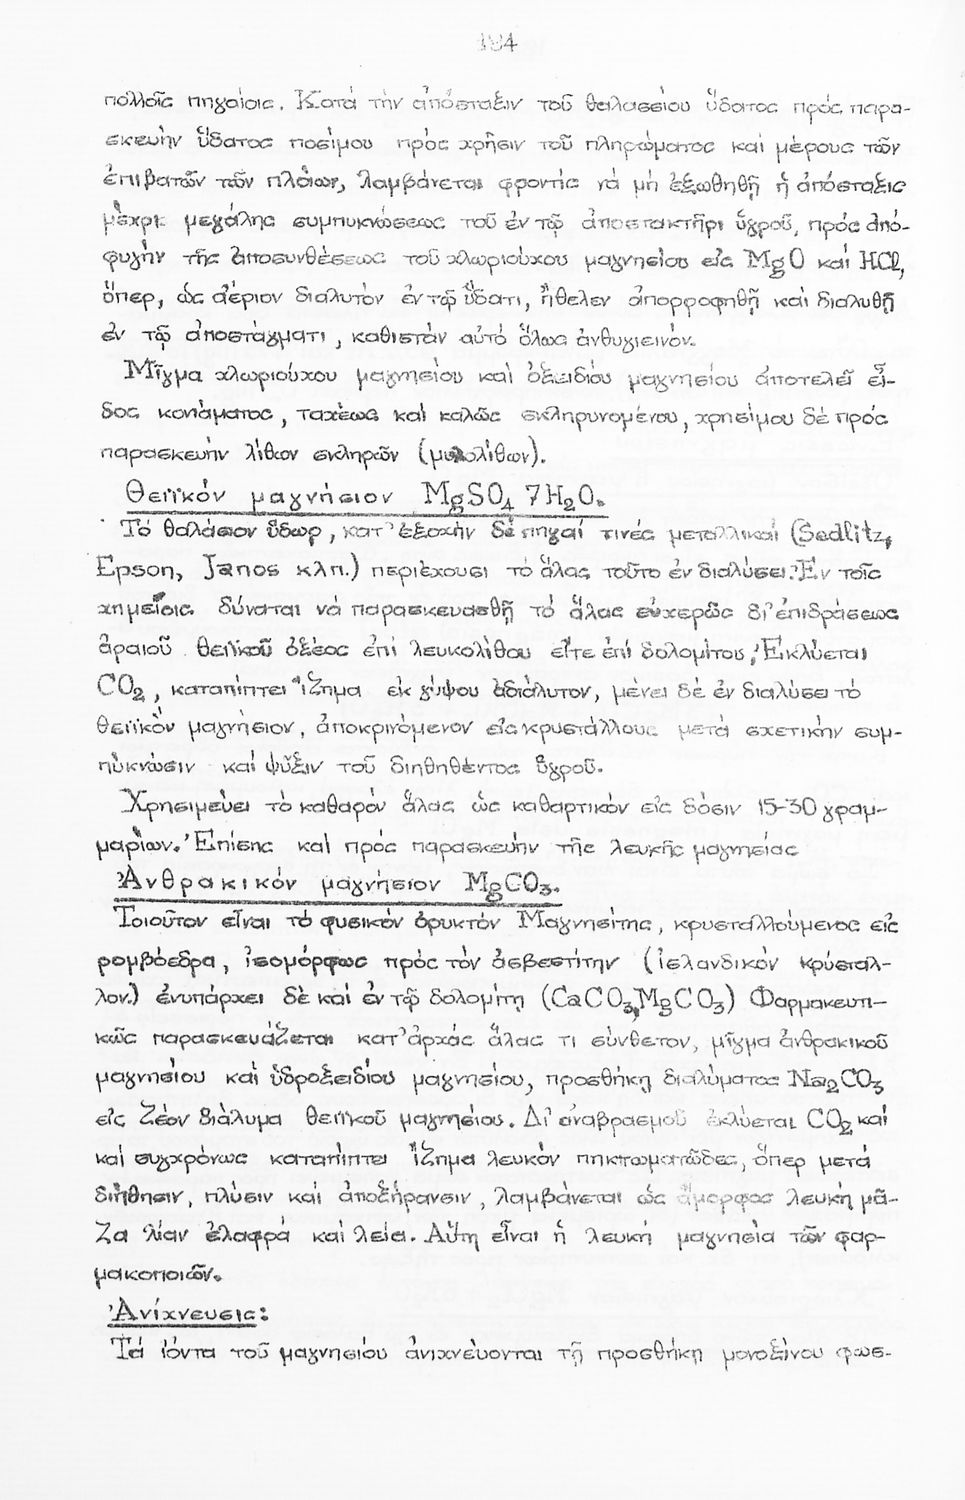 184
πολλοῖς πηγαίοις. Κατά τήν ἀπόσταξιν τοῦ θαλασσίου ὕδατος πρός παρα-
σκευήν ὕδατος ποσίμου πρός χρῆσιν τοῦ πληρώματος καί μέρους τῶν
ἐπιβατῶν τῶν πλοίων, λαμβάνεται φροντίς νά μή ἐξωθηθῇ ἡ ἀπόσταξις
μέχρι μεγάλης συμπυκνώσεως τοῦ ἐν τῷ ἀποστακτῆρι ὑγροῦ, πρός ἀπό-
φυγήν τῆς ἀποσυνθέσεως τοῦ χλωριούχου μαγνησίου εἰς MgO καί HCl,
ὅπερ, ὡς ἀέριον διαλυτόν ἐν τῷ ὕδατι, ἤθελεν ἀπορροφηθῇ καί διαλυθῇ
ἐν τῷ ἀποστάγματι, καθιστάν αὐτό ὅλως ἀνθυγιεινόν.
Μῖγμα χλωριούχου μαγνησίου καί ὀξειδίου μαγνησίου ἀποτελεῖ εἶ-
δος κονιάματος, ταχέως καί καλῶς σκληρυνομένου, χρησίμου δέ πρός
παρασκευήν λίθων σκληρῶν (μυλολίθων).
Θειϊκόν μαγνήσιον MgSO4 7H2O.
Τό θαλάσσιον ὕδωρ, κατ' ἐξοχήν δέ πηγαί τινές μεταλλικαί (Sedlitz,
Epson, Janos κλπ.) περιέχουσι τό ἅλας τοῦτο ἐν διαλύσει. Ἐν τοῖς
χημείοις δύναται νά παρασκευασθῇ τό ἅλας εὐχερῶς δι' ἐπιδράσεως
ἀραιοῦ θειϊκοῦ ὀξέος ἐπί λευκολίθου εἴτε ἐπί δολομίτου. Ἐκλύεται
CO2, καταπίπτει ἵζημα ἐκ γύψου ἀδιάλυτον, μένει δέ ἐν διαλύσει τό
θειϊκόν μαγνήσιον, ἀποκρινόμενον εἰς κρυστάλλους μετά σχετικήν συμ-
πύκνωσιν καί ψῦξιν τοῦ διηθηθέντος ὑγροῦ.
Χρησιμεύει τό καθαρόν ἅλας ὡς καθαρτικόν εἰς δόσιν 15-30 γραμ-
μαρίων. Ἐπίσης καί πρός παρασκευήν τῆς λευκῆς μαγνησίας
Ἀνθρακικόν μαγνήσιον MgCO3.
Τοιοῦτον εἶναι τό φυσικόν ὀρυκτόν Μαγνησίτης, κρυσταλλούμενος εἰς
ρομβόεδρα, ἰσομόρφως πρός τόν ἀσβεστίτην (ἰσλανδικόν κρύσταλ-
λον.) ἐνυπάρχει δέ καί ἐν τῷ δολομίτῃ (CaCO3,MgCO3) Φαρμακευτι-
κῶς παρασκευάζεται κατ' ἀρχάς ἅλας τι σύνθετον, μῖγμα ἀνθρακικοῦ
μαγνησίου καί ὑδροξειδίου μαγνησίου, προσθήκῃ διαλύματος Na2CO3
εἰς ζέον διάλυμα θειϊκοῦ μαγνησίου. Δι' ἀναβρασμοῦ ἐκλύεται CO2 καί
καί συγχρόνως καταπίπτει ἵζημα λευκόν πηκτωματῶδες, ὅπερ μετά
διήθησιν, πλύσιν καί ἀποξήρανσιν, λαμβάνεται ὡς ἄμορφος λευκή μᾶ-
ζα λίαν ἐλαφρά καί λεία. Αὕτη εἶναι ἡ λευκή μαγνησία τῶν φαρ-
μακοποιῶν.
Ἀνίχνευσις:
Τά ἰόντα τοῦ μαγνησίου ἀνιχνεύονται τῇ προσθήκῃ μονοξίνου φωσ-